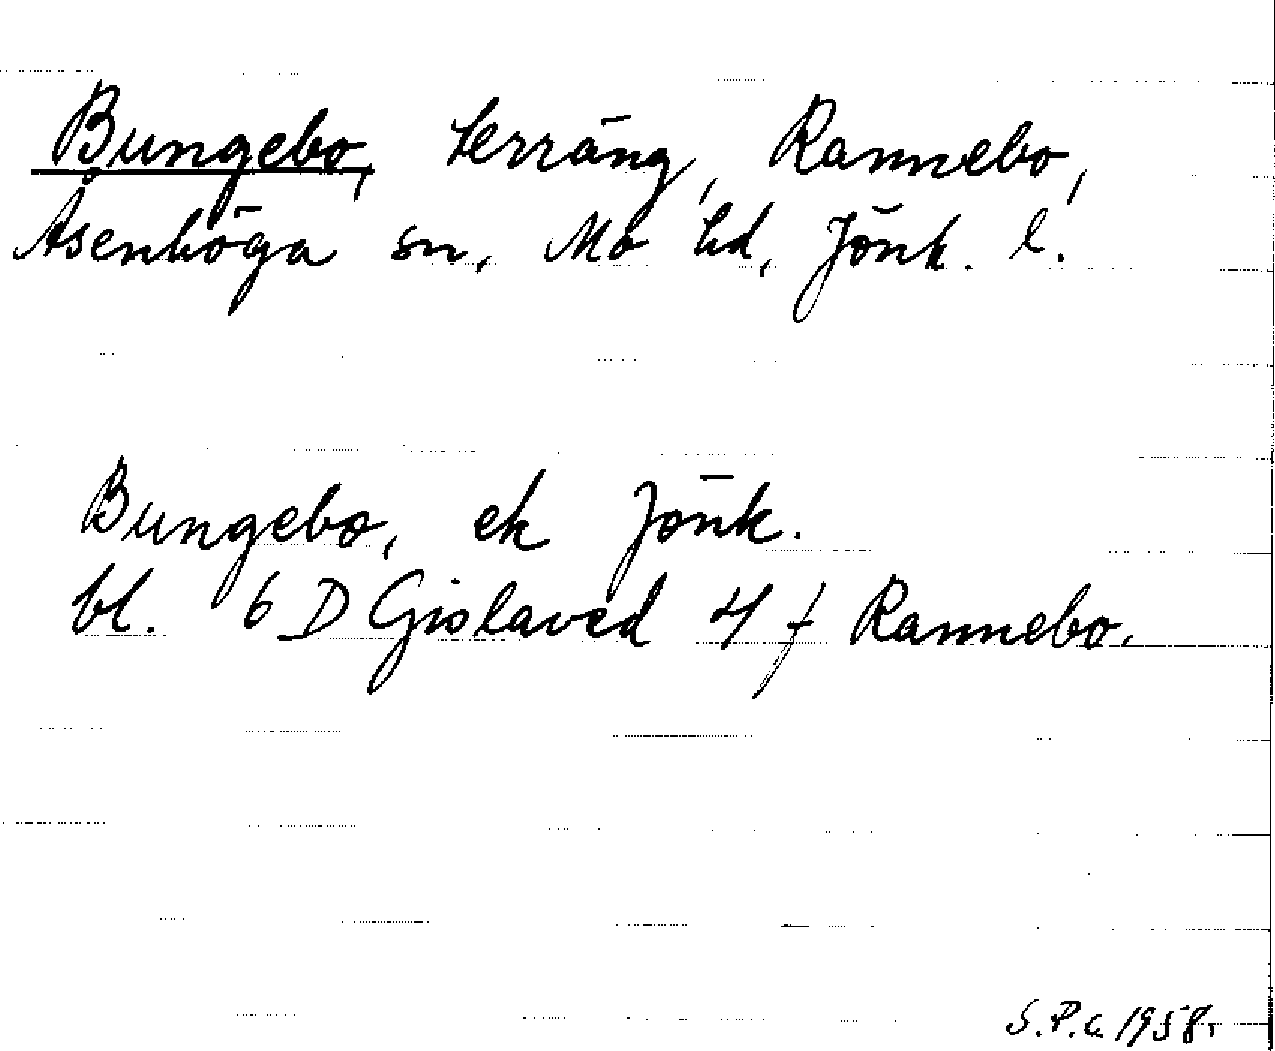 Bungebo, terräng, Rannebo,
Åsenhöga sn, Mo hd, Jönk. l.
Bungebo, ek Jönk.
bl. 6 D Gislaved 4 f Rannebo.
S.P.C. 1958.